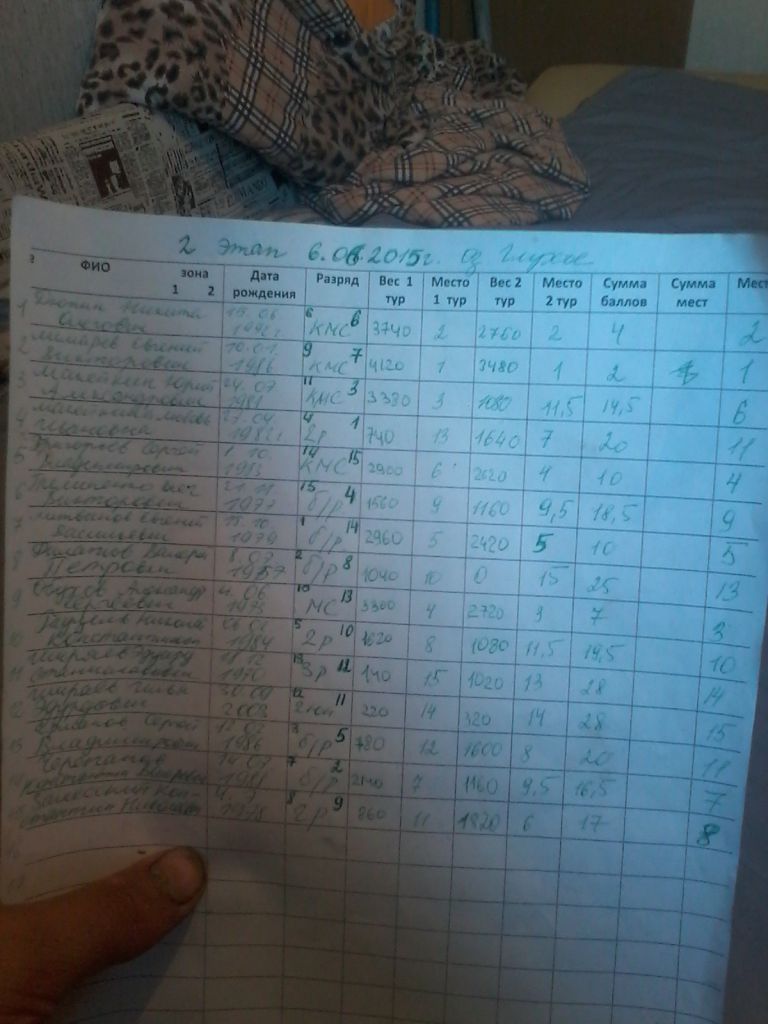 2 этап 6.06.2015г. оз Глухое
ФИО зона 1 2 Дата рождения Разряд Вес 1 тур Место 1 тур Вес 2 тур Место 2 тур Сумма баллов Сумма мест Мест
1 Никита 15.06 6 КМС 6 3740 2 2760 2 4 2
Олегович
2 Евгений 10.01. 1986 9 КМС 7 4120 1 3480 1 2 1
Викторович
3 Макейкин Юрий 24.07 1981 11 КМС 3 3380 3 1080 11,5 14,5 6
Александрович
4 Макейкина Любовь 27.04 4 2р 1 740 13 1640 7 20 11
Ивановна
5 Григорьев Сергей 1.10. 14 КМС 15 2900 6 2620 4 10 4
Владимирович
6 21.11 1977 15 б/р 4 1560 9 1160 9,5 18,5 9
Викторович
7 Литвинов Евгений 15.10. 1979 1 б/р 14 2960 5 2420 5 10 5
Васильевич
8 Филатов Валерий 8.07 1957 2 б/р 8 1040 10 0 15 25 13
Петрович
9 Александр 4.06 1975 10 МС 13 3300 4 2720 3 7 3
Сергеевич
10 Никола 06.01 1984 5 2р 10 1620 8 1080 11,5 19,5 10
Константинович
11 Ширяев Эдуард 11.12 1970 13 3р 12 140 15 1020 13 28 14
Станиславович
12 Ширяев Илья 30.09 2003 12 2юн 11 220 14 320 14 28 15
Эдуардович
13 Сергей 12.02 1986 3 б/р 5 780 12 1600 8 20 11
Владимирович
14 14.07 1981 7 б/р 2 2140 7 1160 9,5 16,5 7
15 Залесский Кон- 8 2р 9 860 11 1820 6 17 8
стантин Николаевич
16
17